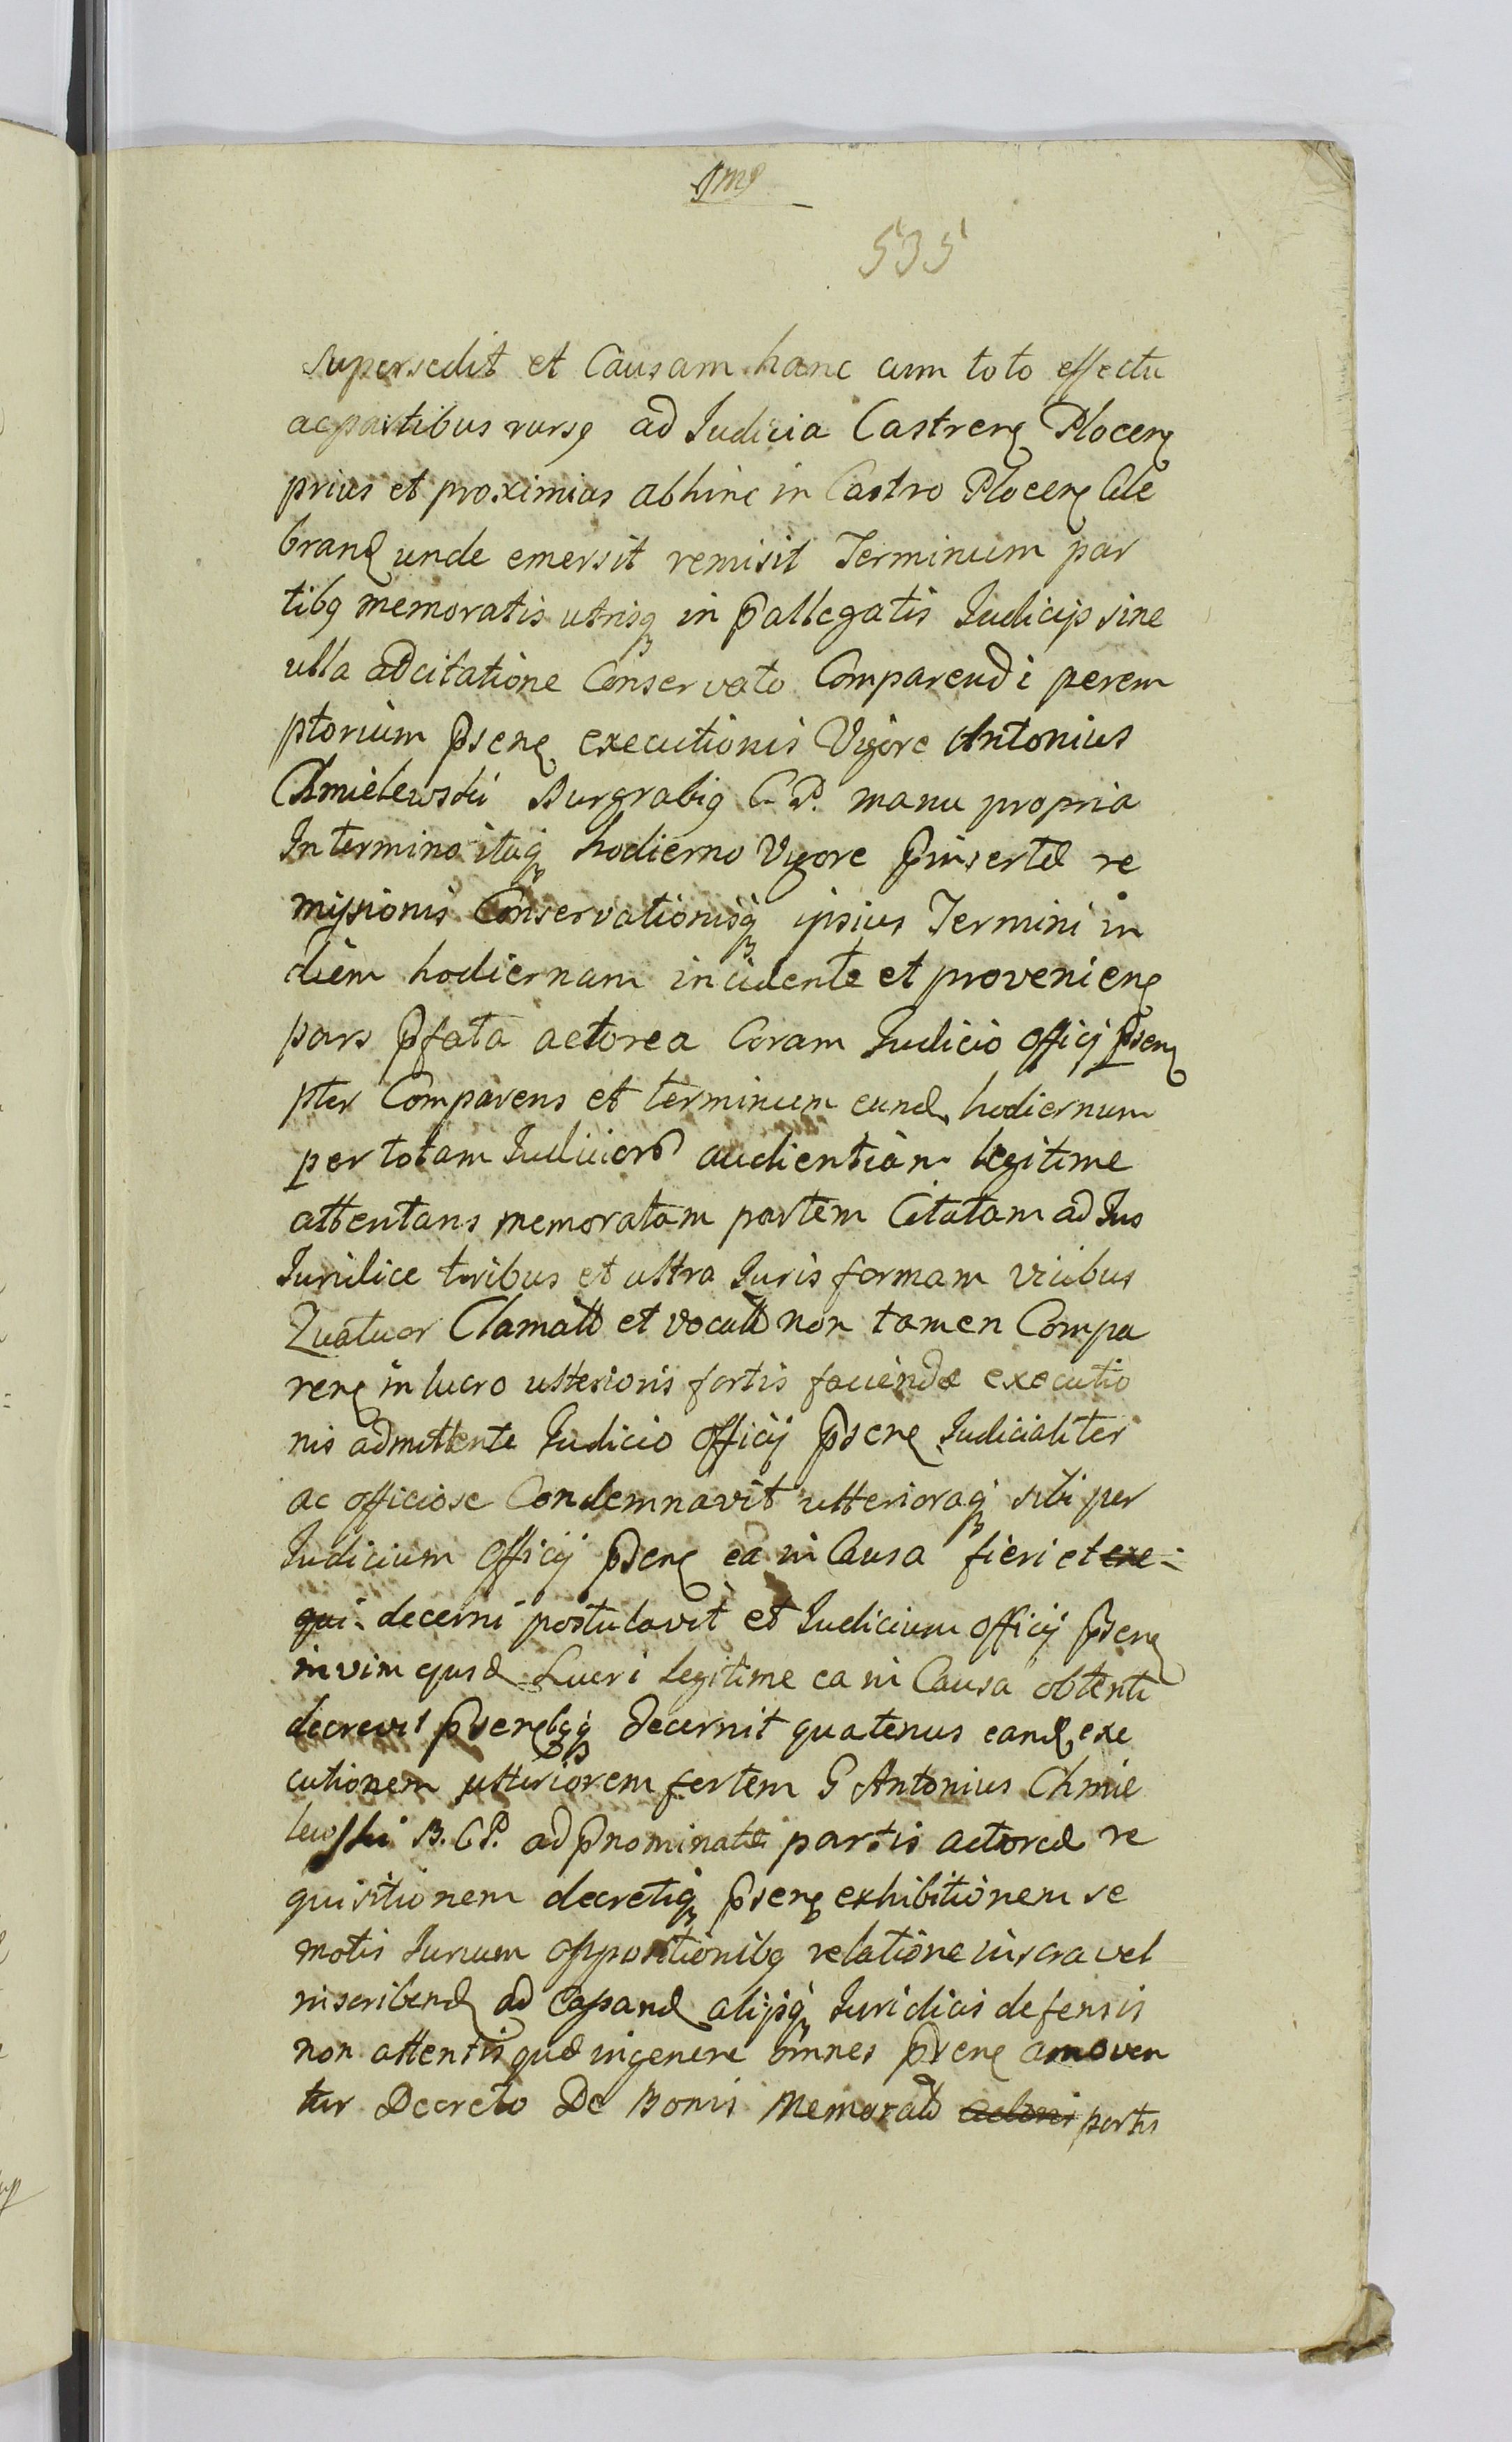 535
supersedit et Causam hanc cum toto effectu
ac partibus rursꝫ ad Iudicia Castrenꝭ Plocenꝭ
prius et proximius abhinc in Castro Plocenꝭ Cele
brand unde emersit remisit Terminum par
tibꝫ memoratis utrisqꝫ in p̄allegatis Iudicijs sine
ulla adcitatione Conservato Comparendi perem
ptorium p̄senꝭ executionis Vigore Antonius
Chmielewski Burgrabiꝫ C. P. manu propria
In termino itaqꝫ hodierno Vigore p̄insertæ re
missionis Conservationisqꝫ ipsius Termini in
diem hodiernam incidente et provenienꝭ
pars p̄fata actorea Coram Iudicio Officij p̄senꝭ
pter Comparens et terminum eund hodiernum
per totam Iudicior audientiam legitime
attentans memoratam partem Citatam ad Ius
Iuridice tribus et ultra Iuris formam vicibus
Quatuor Clamat et vocat non tamen Compa
renꝭ in lucro ulterioris fortis faciendæ executio
nis admittente Iudicio Officij p̄senꝭ Iudicialiter
ac officiose Condemnavit ulterioraqꝫ sibi per
Iudicium Officij p̄senꝭ ea in Causa fieri et exe-
qui decerni postulavit et Iudicium officij p̄senꝭ
in vim ejusd Lucri legitime ea in Causa obtenti
decrevit p̄senꝭbꝫqꝫ decernit quatenus eand exe
cutionem ulteriorem fortem G Antonius Chmie
lewski B. C P. ad p̄nominatæ partis actoreæ re
quisitionem decretiqꝫ p̄senꝭ exhibitionem se
motis Iurium oppositionibꝫ relatione inscra vel
inscribend ad Cassand alijsqꝫ Iuridicis defensis
non attentis quæ in genere omnes p̄senꝭ amoven
tur Decreto De Bonis Memorat partis